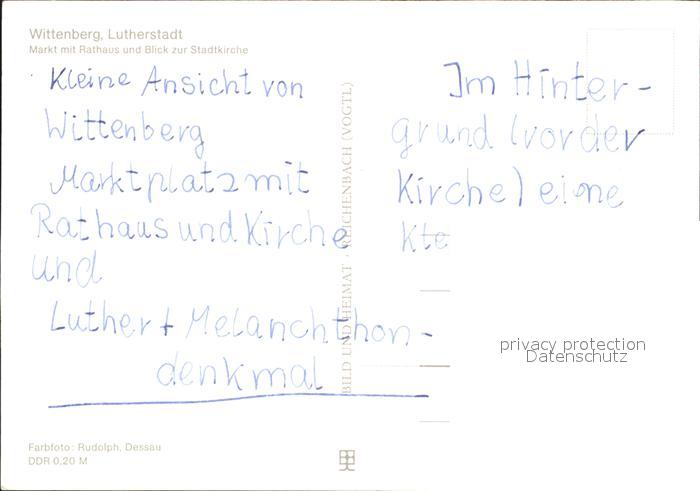 Wittenberg, Lutherstadt
Markt mit Rathaus und Blick zur Stadtkirche
Kleine Ansicht von
Wittenberg
Marktplatz mit
Rathaus und Kirche
und
Luther + Melanchthon-
denkmal
BILD UND HEIMAT · REICHENBACH (VOGTL)
Im Hinter-
grund (vor der
Kirche) eine
privacy protection
Datenschutz
Farbfoto: Rudolph, Dessau
DDR 0,20 M